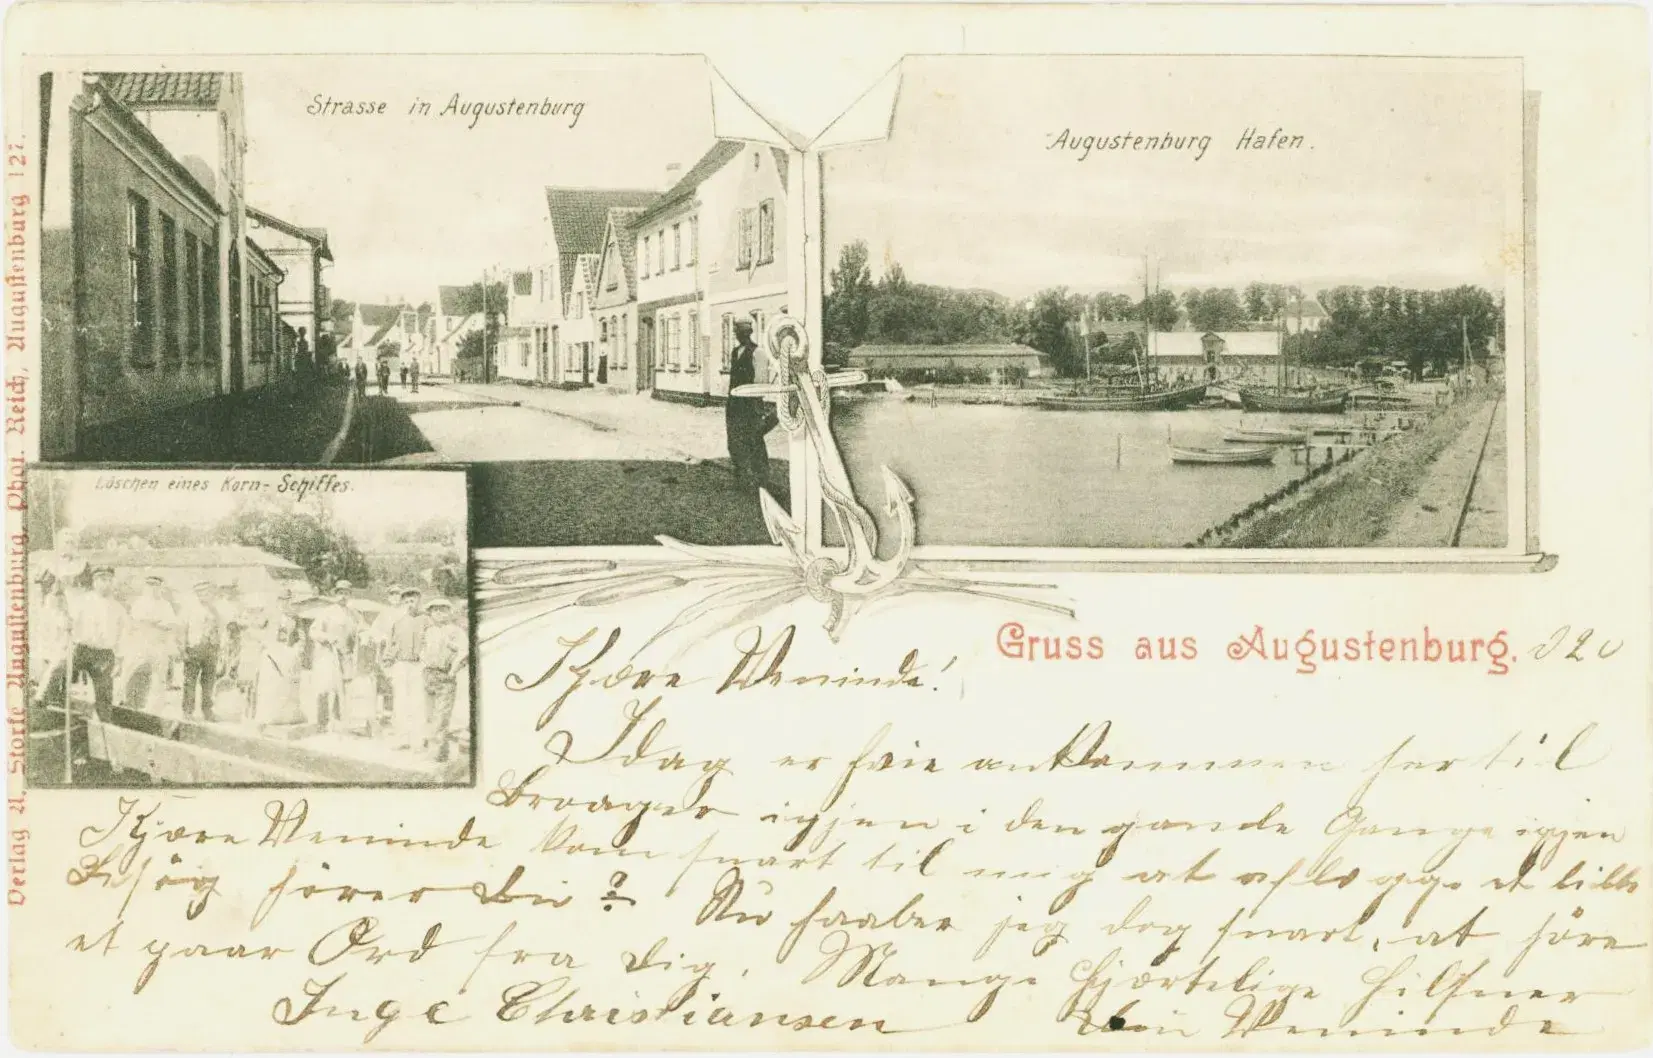 Strasse in Augustenburg
Augustenburg Hafen.
Löschen eines Korn-Schiffes.
Verlag A. Storfe Augustenburg. Phot. Reich, Augustenburg 127.
Gruss aus Augustenburg.
Kjære Veninde!
Idag er ankommen her til
Broager igjen i den Gange igjen
Kjære Veninde kom snart til mig at aflægge et lille
Besög hörer Du? Nu haaber jeg dog snart, at höre
et paar Ord fra Dig. Mange Hjærtelige Hilsner
Inge Christiansen Din Veninde